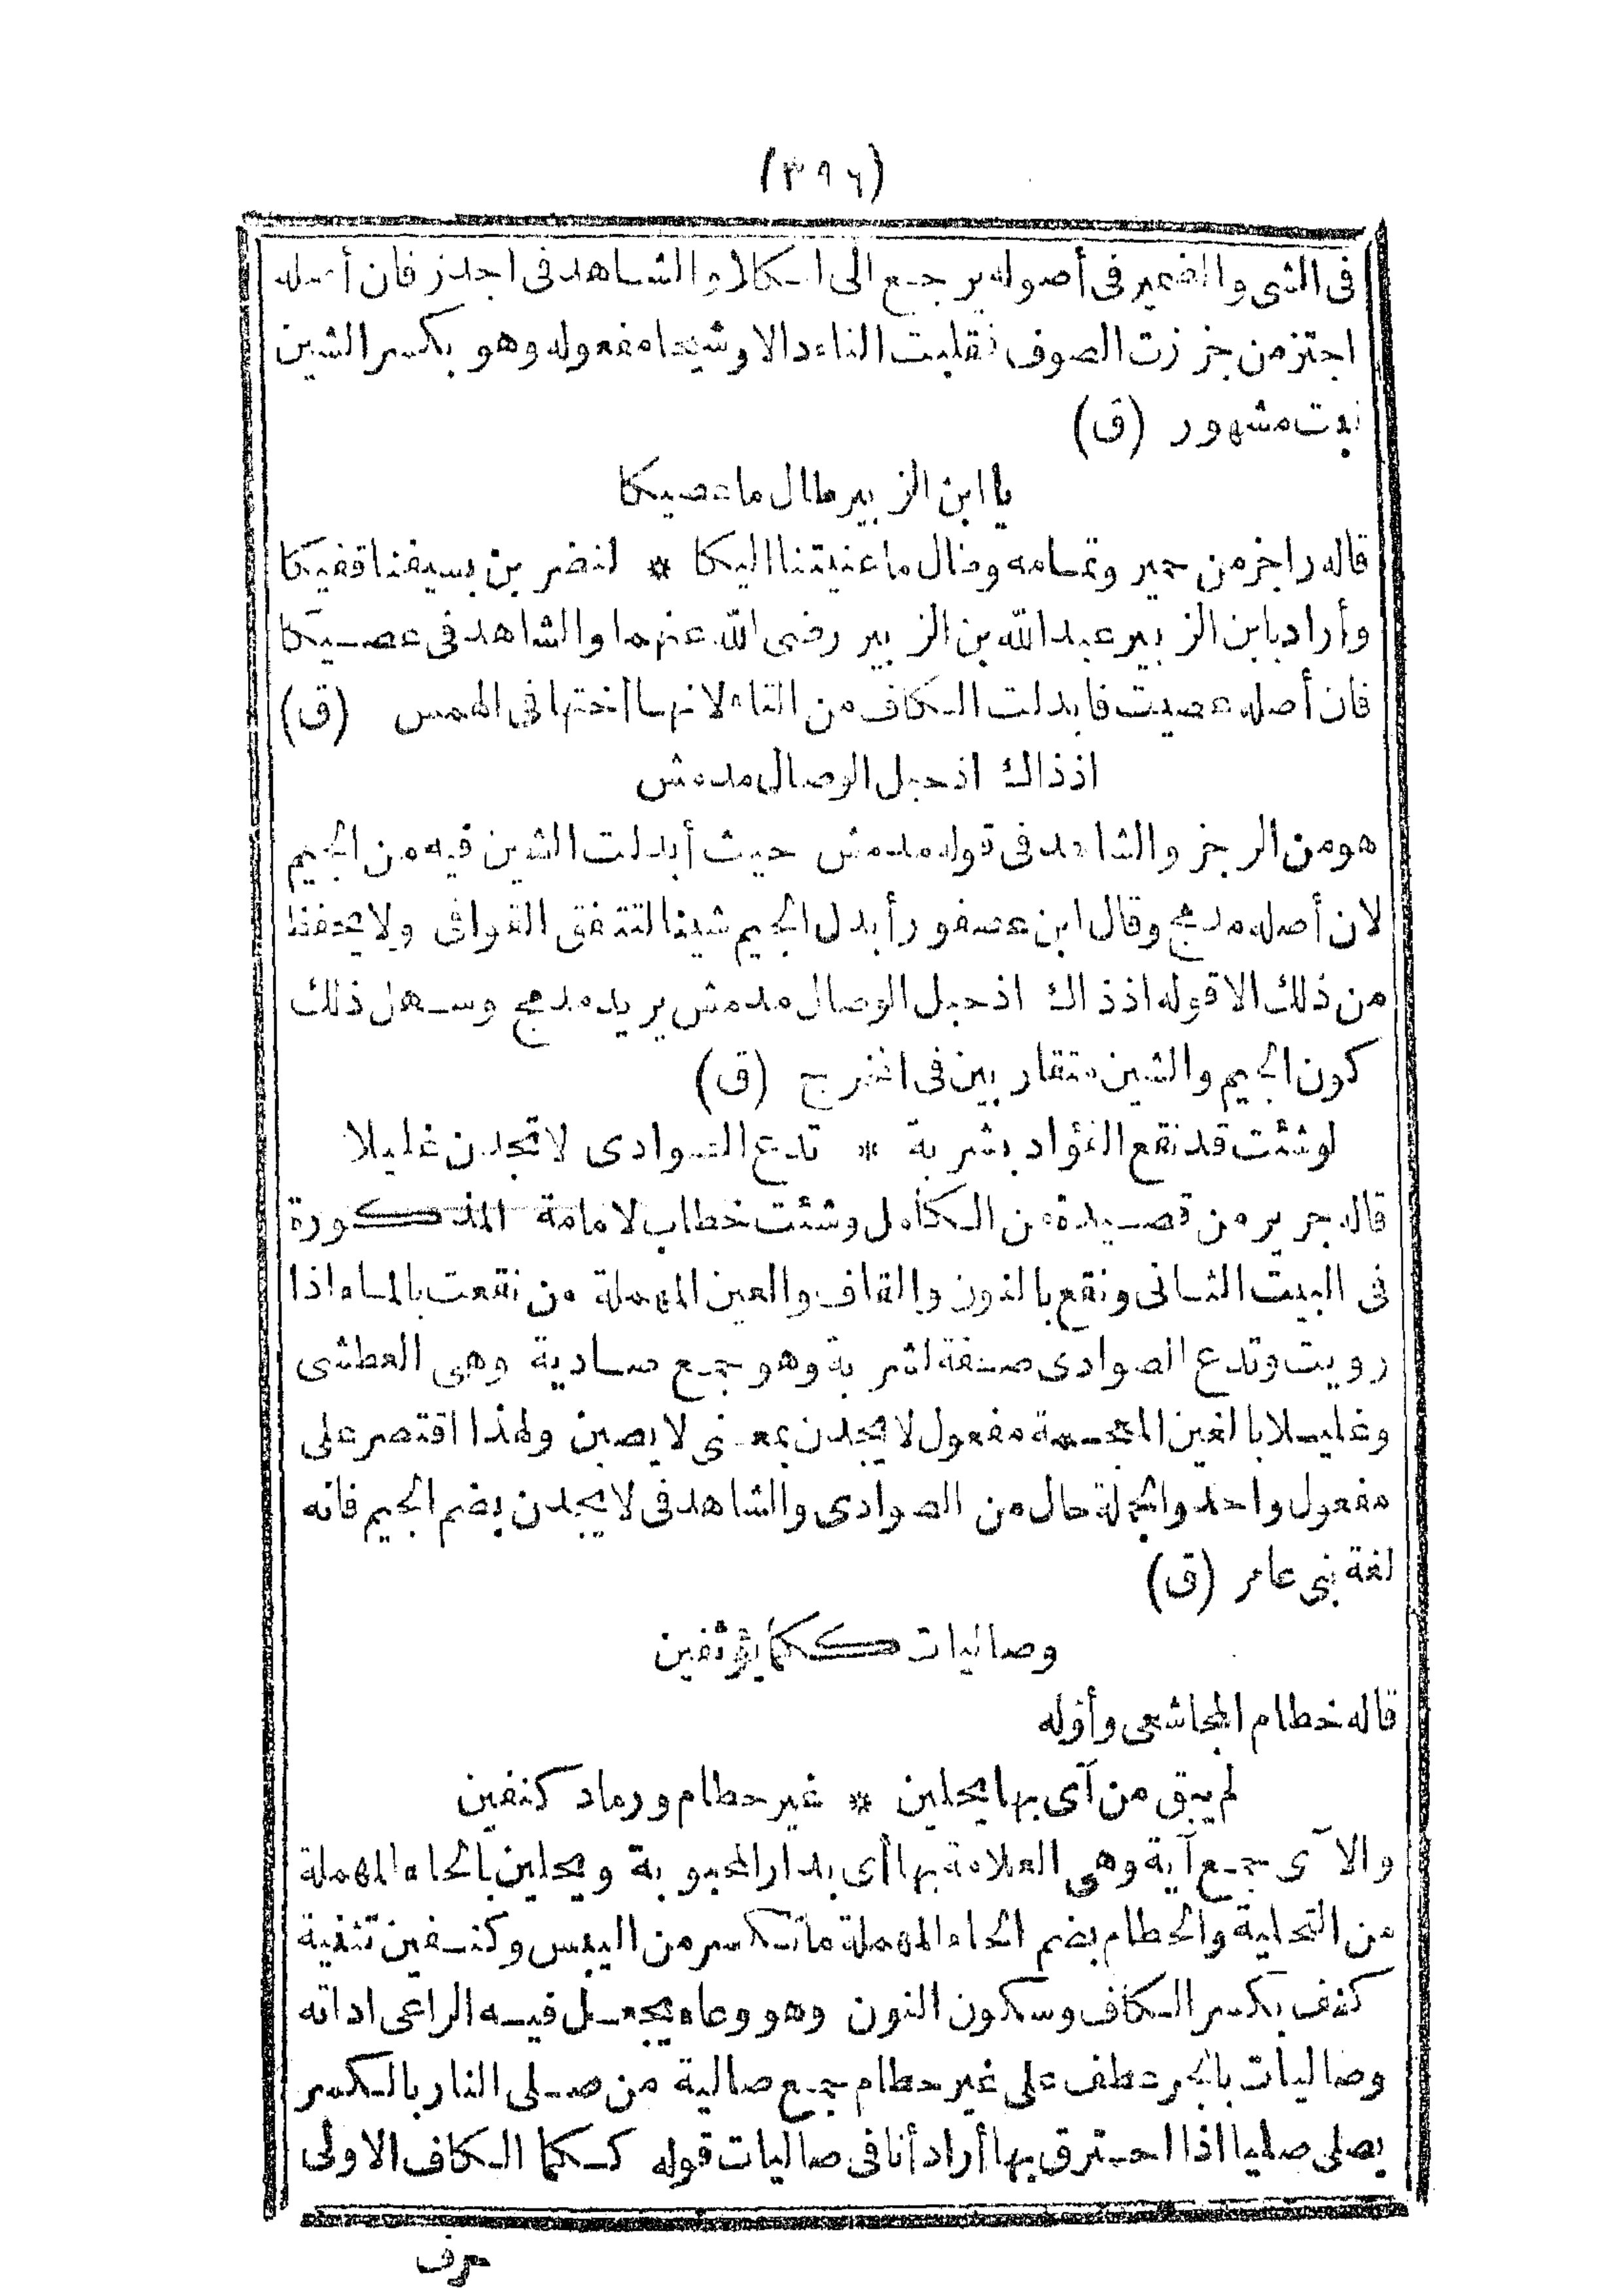 (٣٩٦)
فى الشى والضمير فى أصوله يرجع الى الكلا والشاهد فى اجدز فان أصله
اجتز من جززت الصوف فقلبت التاء دالا وشيحا مفعوله وهو بكسر الشين
نبت مشهور (ق)
يا ابن الزبير طال ما عصيكا
قاله راجز من حمير وتمامه وطال ما عنيتنا اليكا * لنضربن بسيفنا قفيكا
وأراد بابن الزبير عبد الله بن الزبير رضى الله عنهما والشاهد فى عصيكا
فان أصله عصيت فابدلت الكاف من التاء لانها أختها فى الهمس (ق)
اذ ذاك اذ حبل الوصال مدمش
هو من الرجز والشاهد فى قوله مدمش حيث أبدلت الشين فيه من الجيم
لان أصله مدمج وقال ابن عصفور أبدل الجيم شينا لتتفق القوافى ولا يحفظ
من ذلك الا قوله اذ ذاك اذ حبل الوصال مدمش يريد مدمج وسهل ذلك
كون الجيم والشين متقاربين فى المخرج (ق)
لو شئت قد نقع الفؤاد بشربة * تدع الصوادى لا تجدن غليلا
قاله جرير من قصيدة من الكامل وشئت خطاب لامامة المذكورة
فى البيت الثانى ونقع بالنون والقاف والعين المهملة من نقعت بالماء اذا
رويت وتدع الصوادى صفة لشربة وهو جمع صادية وهى العطشى
وغليلا بالغين المعجمة مفعول لا يجدن بمعنى لا يصبن ولهذا اقتصر على
مفعول واحد والجملة حال من الصوادى والشاهد فى لا يجدن بضم الجيم فانه
لغة بنى عامر (ق)
وصاليات ككما يؤثفين
قاله خطام المجاشعى وأوله
لم يبق من آى بها يحلين * غير حطام ورماد كنفين
والآى جمع آية وهى العلامة بها أى بدار المحبوبة ويحلين بالحاء المهملة
من التحلية والحطام بضم الحاء المهملة ما تكسر من اليبس وكنفين تثنية
كنف بكسر الكاف وسكون النون وهو وعاء يجعل فيه الراعى اداته
وصاليات بالجر عطف على غير حطام جمع صالية من صلى النار بالكسر
يصلى صليا اذا احترق بها أراد أنا فى صاليات قوله ككما الكاف الاولى
حرف